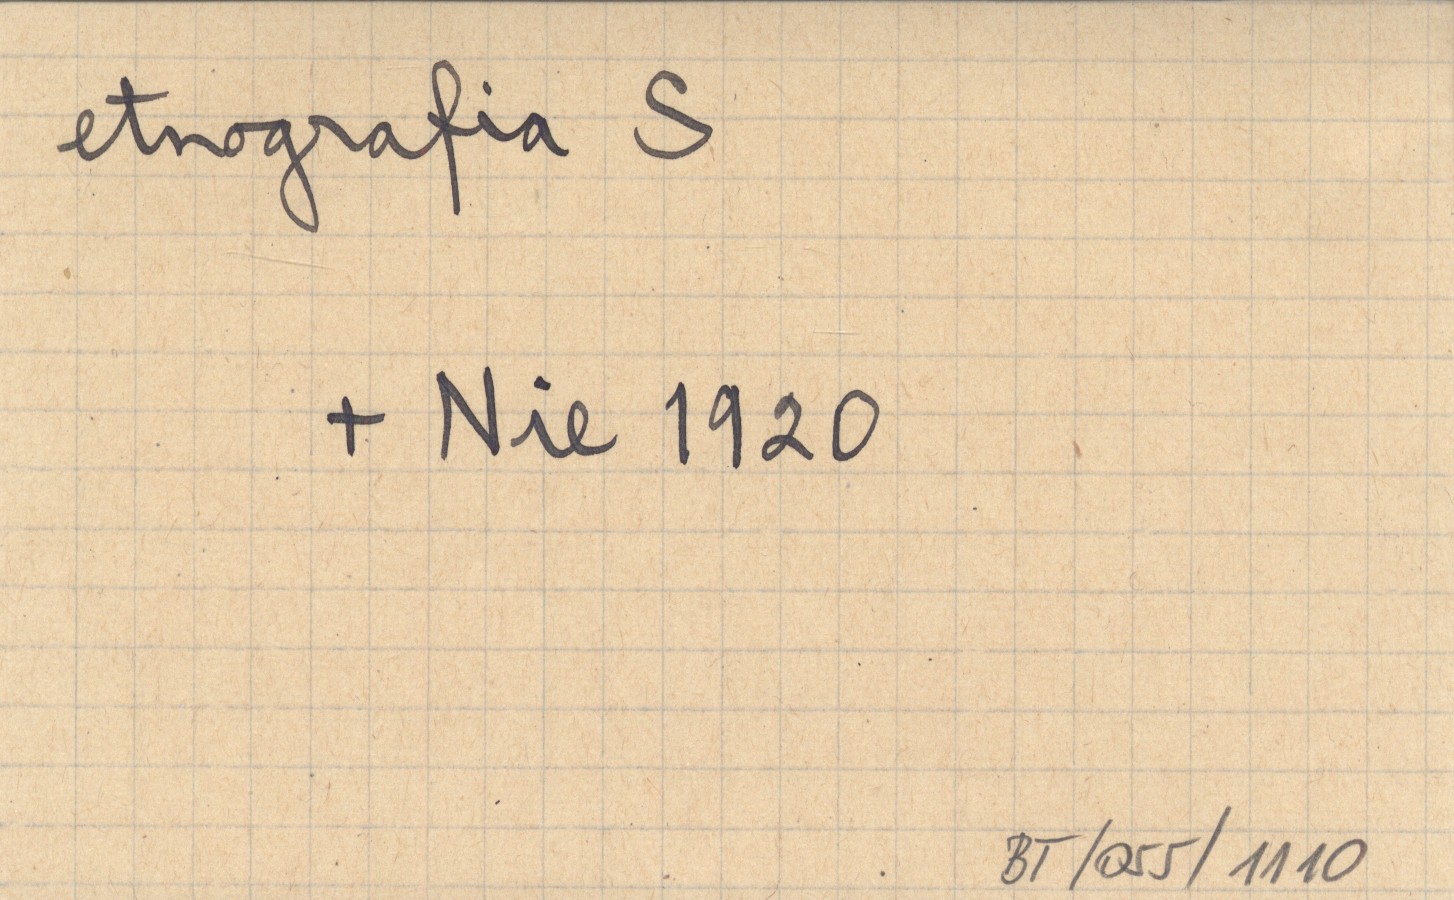 etnografia S
+ Nie 1920
BT/055/1110